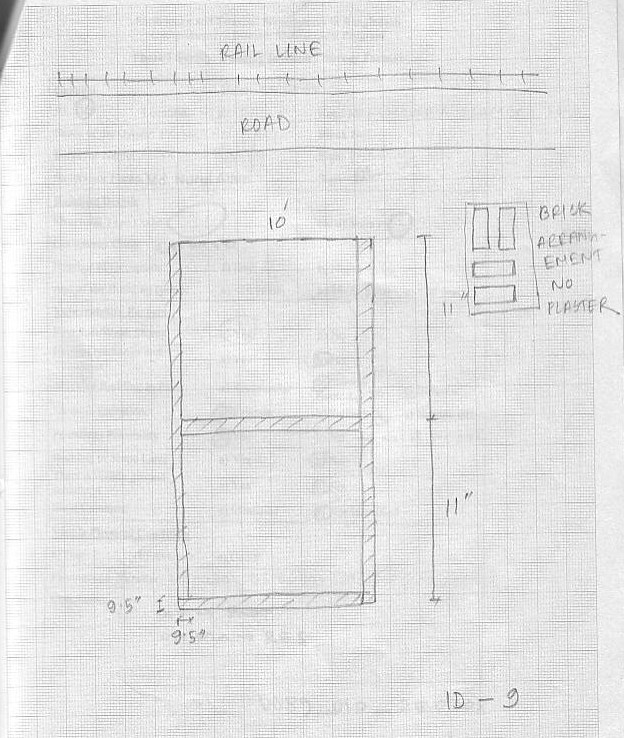 RAIL LINE
ROAD
10'
BRICK
ARRAN-
EMENT
NO
PLASTER
11"
11"
9.5"
9.5"
ID - 9